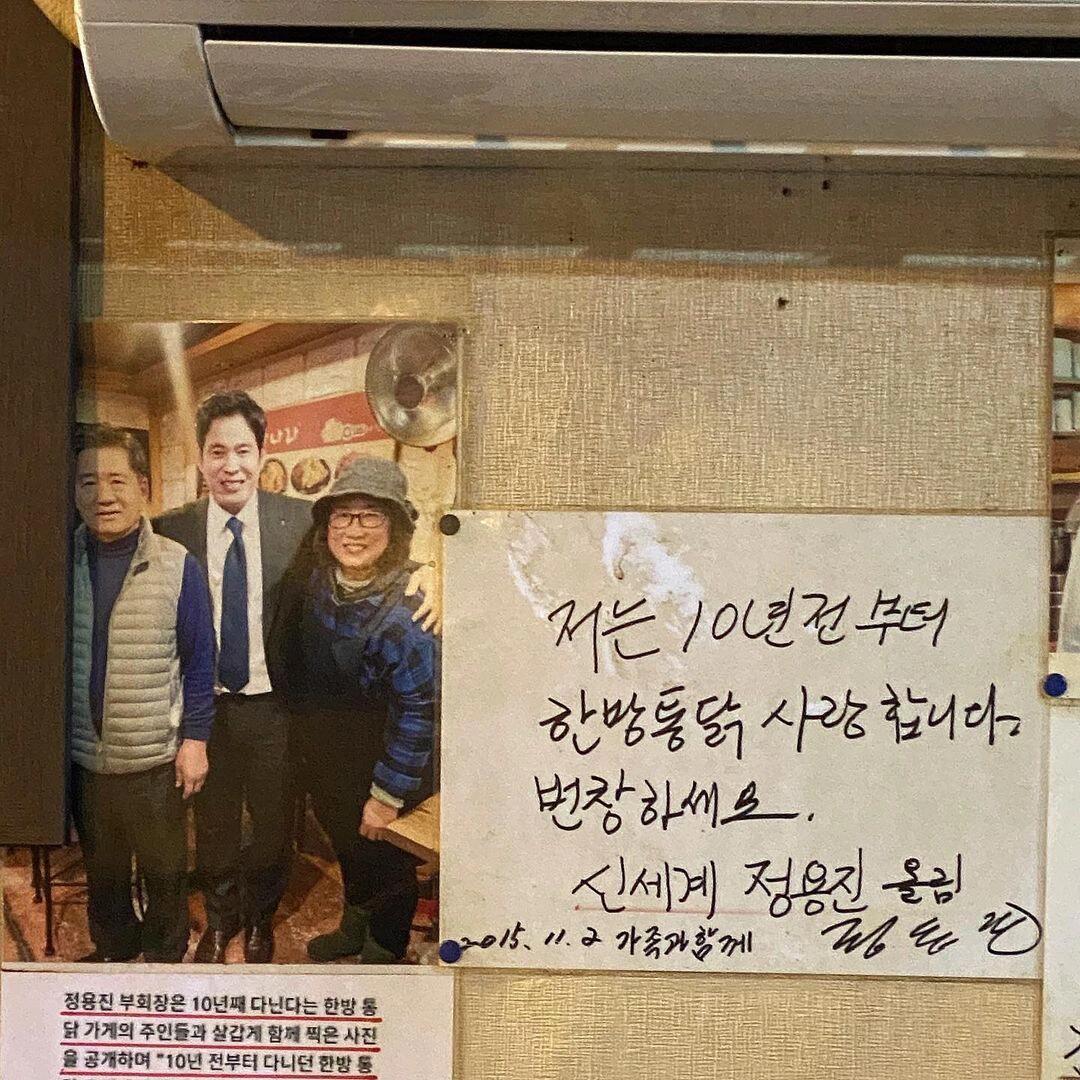 저는 10년전 부터
한방통닭 사랑합니다.
번창하세요.
신세계 정용진 올림
2015. 11. 2 가족과 함께
정용진 부회장은 10년째 다닌다는 한방 통
닭 가게의 주인들과 살갑게 함께 찍은 사진
을 공개하며 "10년 전부터 다니던 한방 통